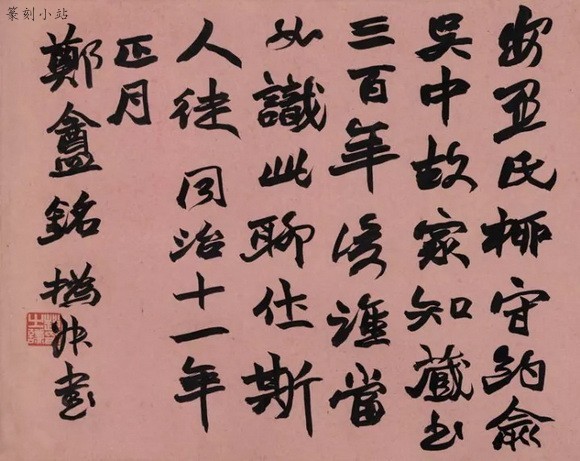 篆刻小站
氏守約
吳中故家知藏書
三百年後誰當
識此聊仕斯
人徒 同治十一年
正月
鄭盦銘 撝叔書